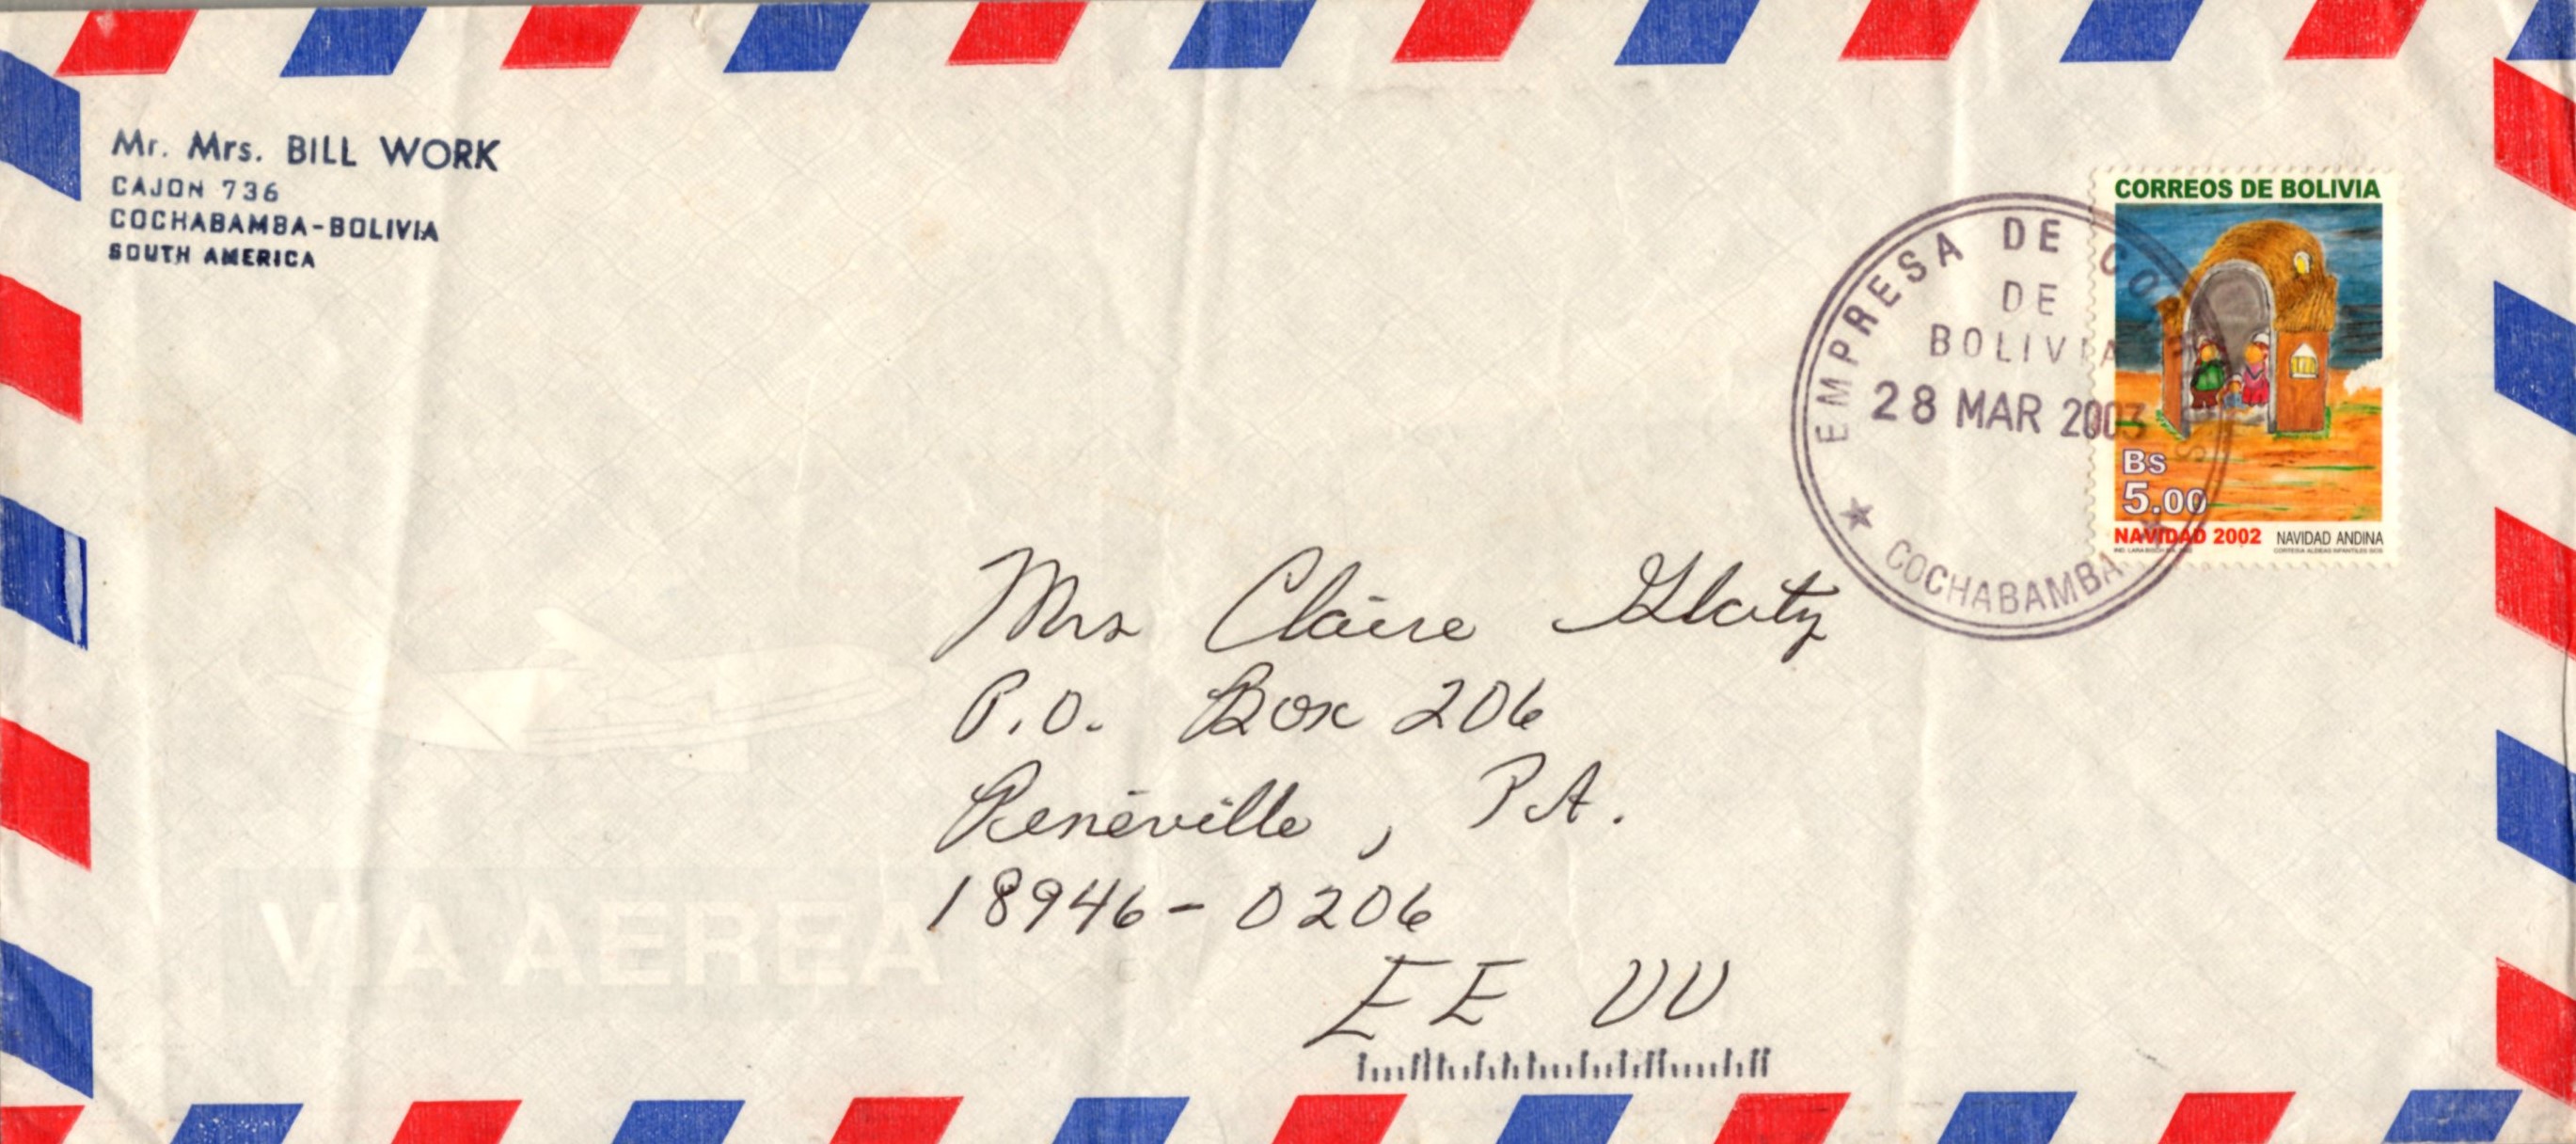 Mr. Mrs. BILL WORK
CAJON 736
COCHABAMBA-BOLIVIA
SOUTH AMERICA
CORREOS DE BOLIVIA
Bs
5.00
NAVIDAD 2002 NAVIDAD ANDINA
EMPRESA DE CORREOS
DE
BOLIVIA
28 MAR 2003
COCHABAMBA
Mrs Claire Glatz
P.O. Box 206
Reneville, PA.
18946-0206
EE UU
VIA AEREA